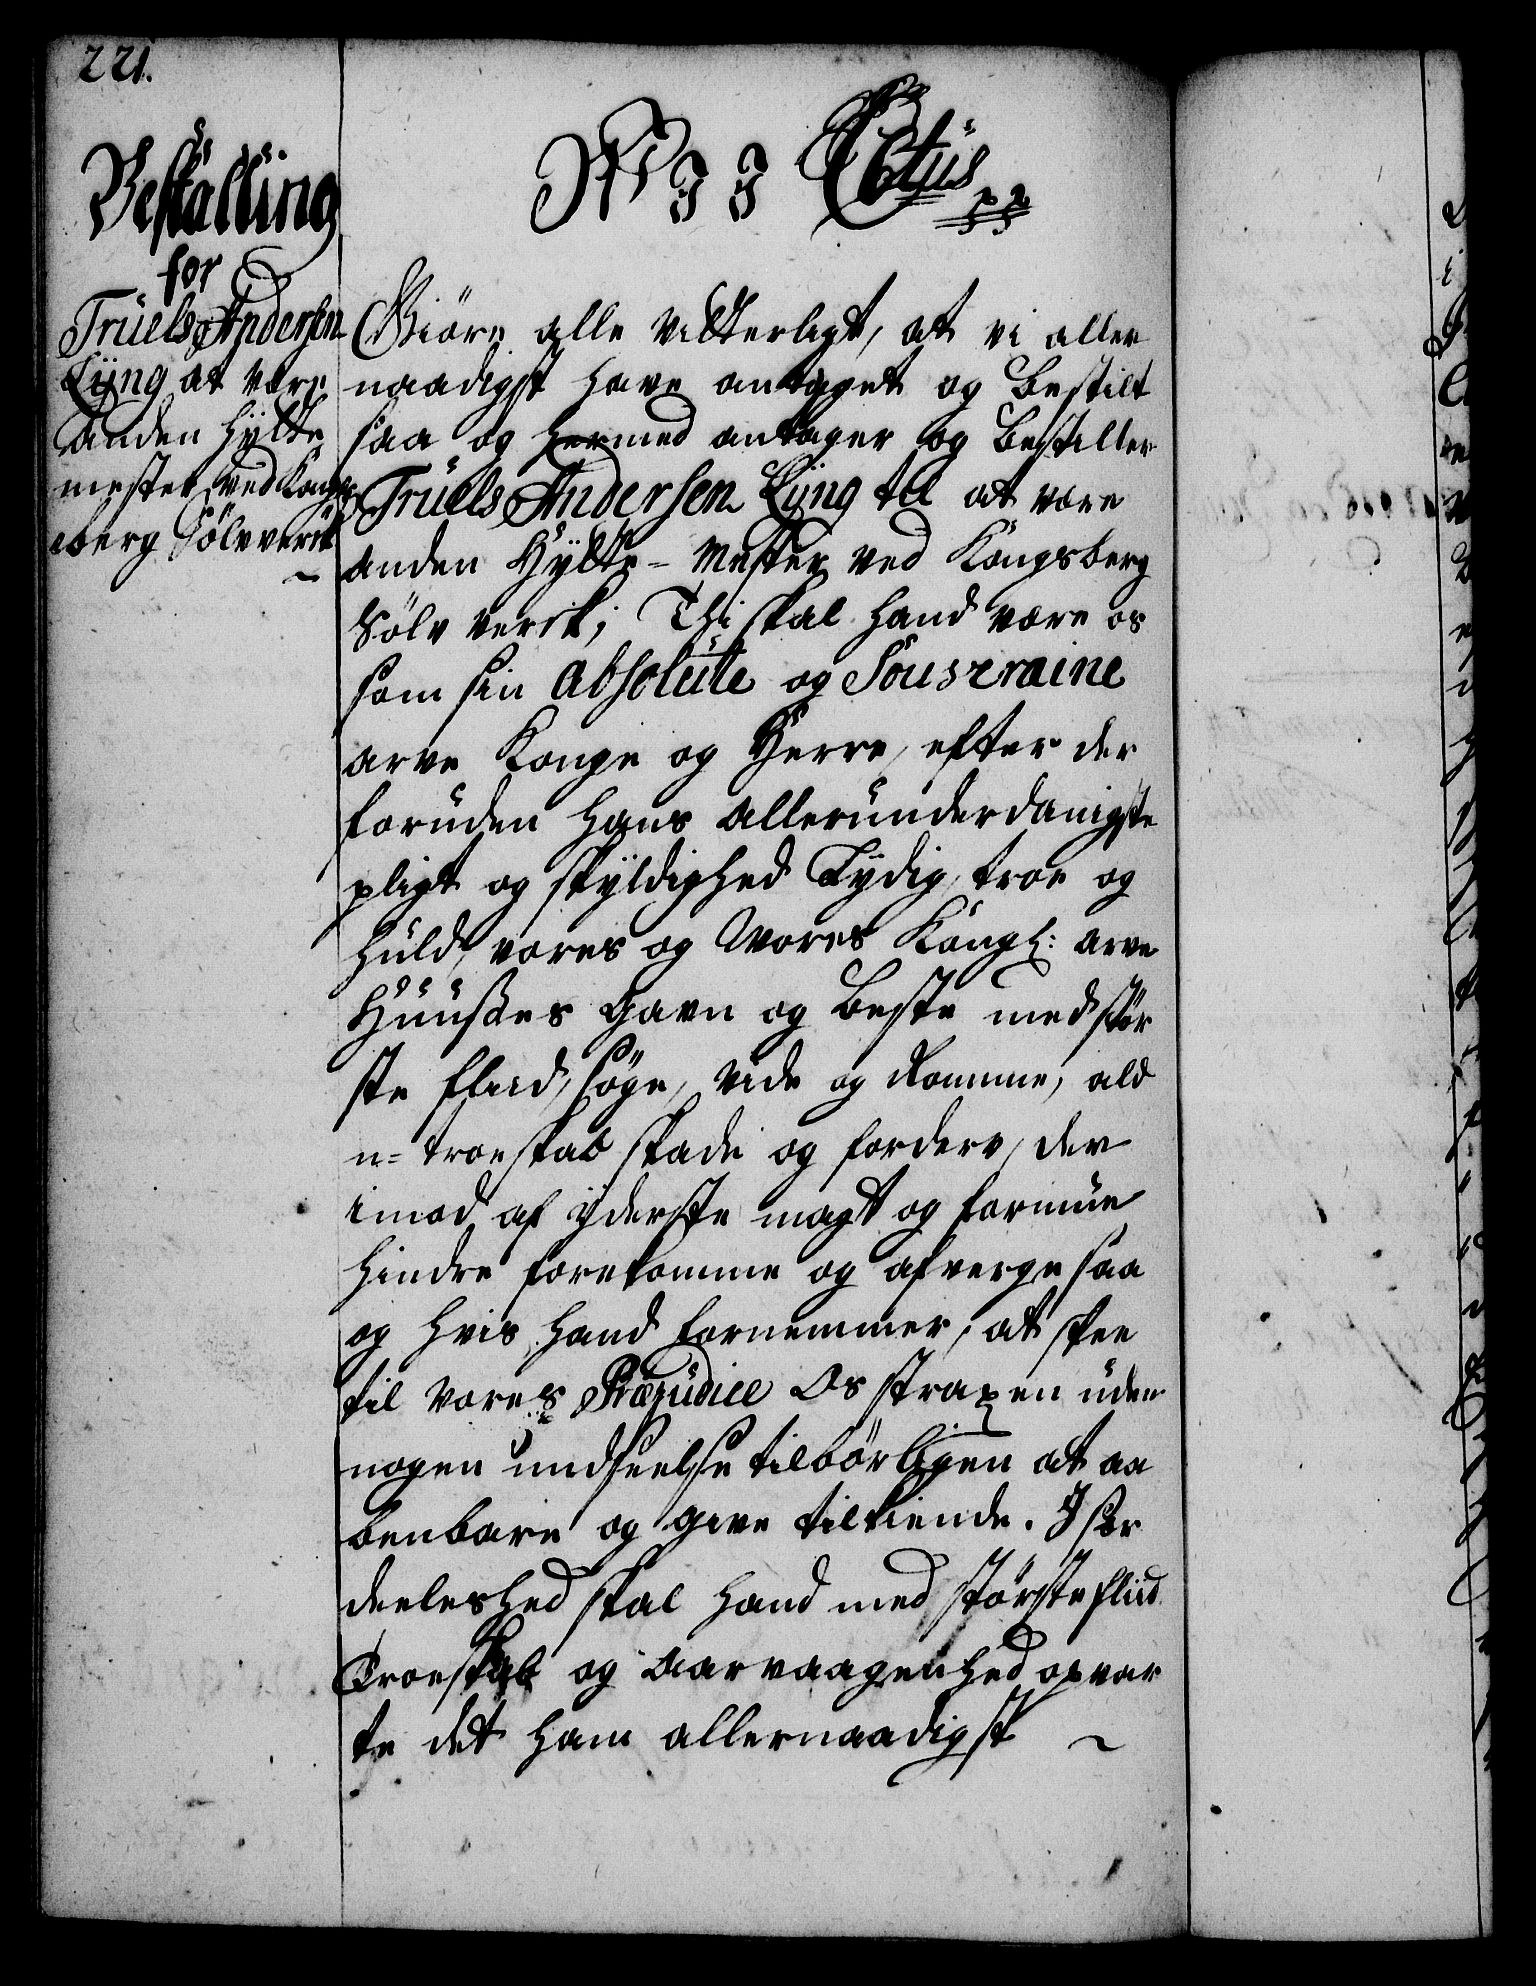 221.
Bestalling
for
Truels Andersen
Lÿng at være
anden Hytte
mester ved Kongs
berg Sölvverck
Giöre alle vitterligt, at vi aller
naadigst have antaget og bestilt
saa og hermed antager og bestiller
Truels Andersen Lÿng til at være
anden Hÿtte-Mester ved Kongsberg
Sölv verck; Thi skal hand være os
som sin absolute og Souveraine
arve Konge og Herre, efter der
foruden hans allerunderdanigste
pligt og skyldighed Lydig, troe og
huld, vores og Vores Kongl: arve
Huußes Gavn og Beste med stör
ste fliid, söge, vide og Ramme, ald
u=troeskab skade og forderv, der
imod af ÿderste magt og formue
hindre forekomme og afverge saa
og hvis hand fornemmer, at skee
til vores Præjudice Os straxen uden
nogen undseelse tilbörligen at aa
benbare og give tilkiende. I sær
deeleshed skal hand med störste fliid
Troeskab og Aarvaagenhed opvar
te det ham allernaadigst